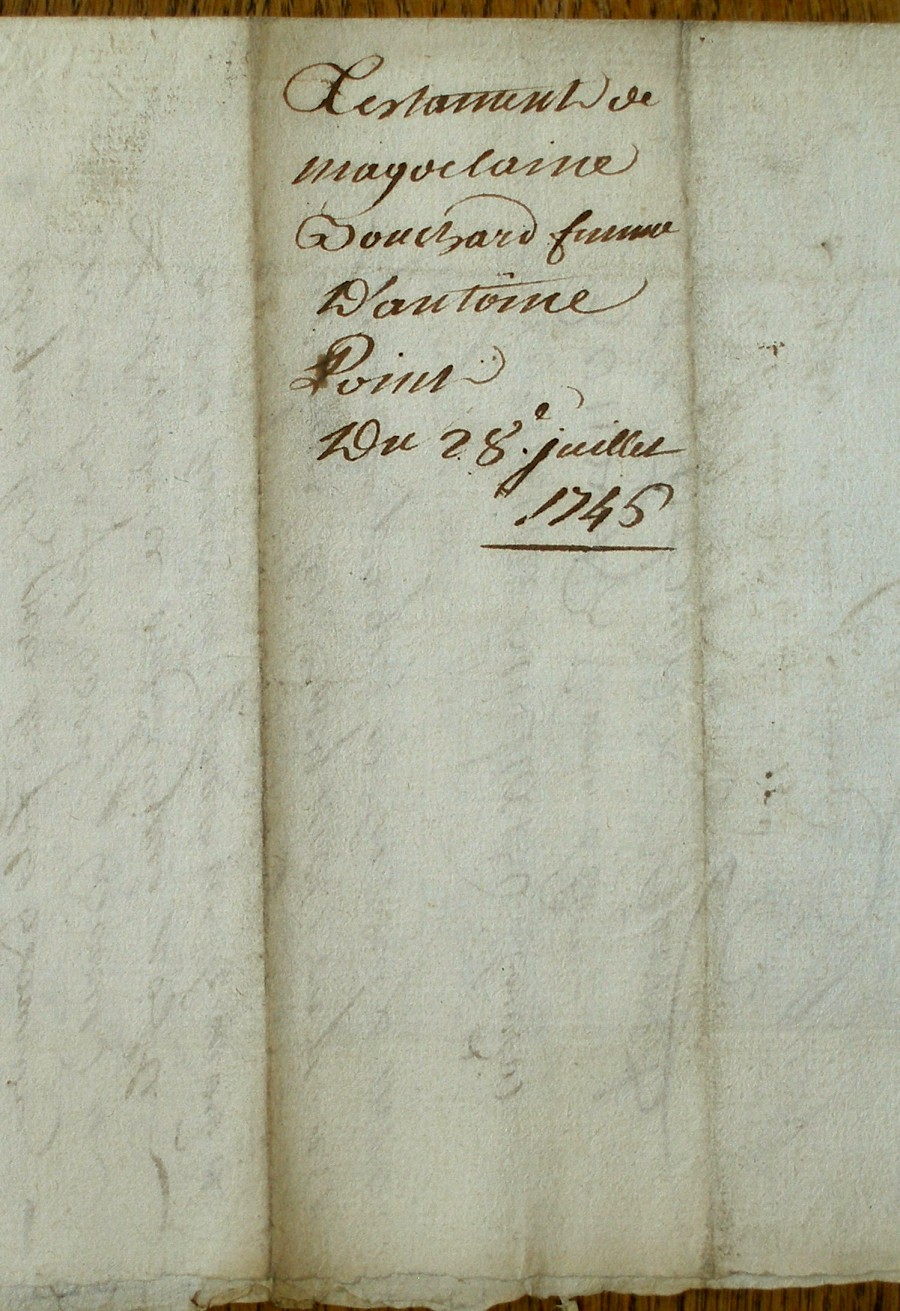 Testament de
magdelaine
Bouchard femme
D'antoine
Point
Du 28e. juillet
1746